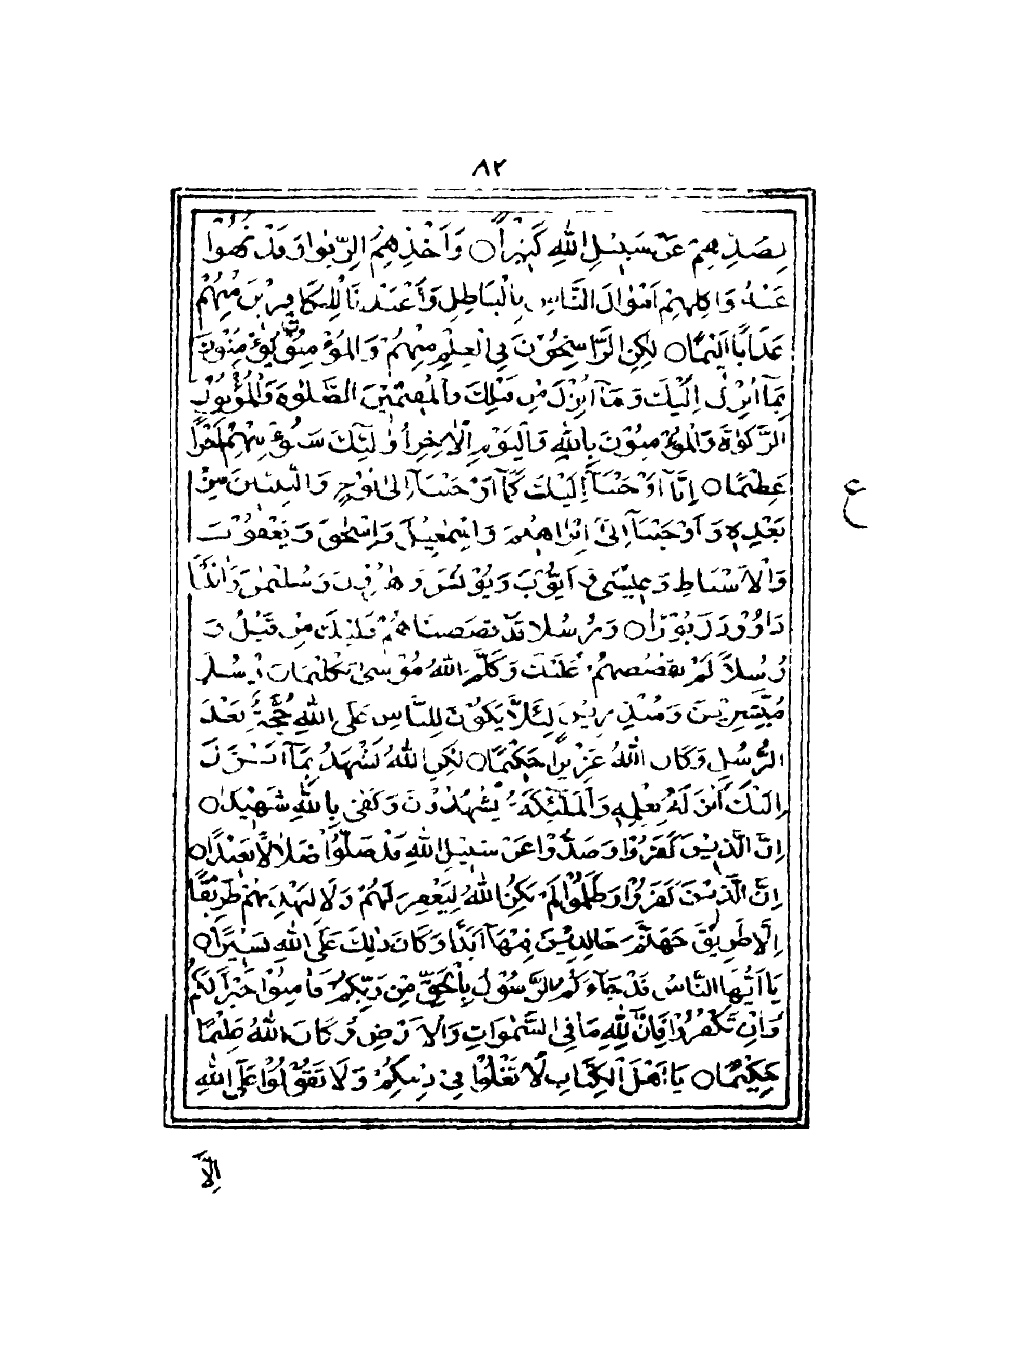 ٨٢
بِصَدِّهِمْ عَنْ سَبِيلِ اللّٰهِ كَثِيرًا ○ وَاَخْذِهِمُ الرِّبٰوا وَقَدْ نُهُوا
عَنْهُ وَاَكْلِهِمْ اَمْوَالَ النَّاسِ بِالْبَاطِلِ وَاَعْتَدْنَا لِلْكَافِرِيْنَ مِنْهُمْ
عَذَابًا اَلِيْمًا ○ لٰكِنِ الرَّاسِخُوْنَ فِي الْعِلْمِ مِنْهُمْ وَالْمُؤْمِنُوْنَ يُؤْمِنُوْنَ
بِمَآ اُنْزِلَ اِلَيْكَ وَمَآ اُنْزِلَ مِنْ قَبْلِكَ وَالْمُقِيْمِيْنَ الصَّلٰوةَ وَالْمُؤْتُوْنَ
الزَّكٰوةَ وَالْمُؤْمِنُوْنَ بِاللّٰهِ وَالْيَوْمِ الْاٰخِرِ اُولٰٓئِكَ سَنُؤْتِيْهِمْ اَجْرًا
عَظِيْمًا ○ اِنَّآ اَوْحَيْنَآ اِلَيْكَ كَمَآ اَوْحَيْنَآ اِلٰى نُوْحٍ وَالنَّبِيّٖنَ مِنْ
بَعْدِهٖ وَاَوْحَيْنَآ اِلٰى اِبْرَاهِيْمَ وَاِسْمٰعِيْلَ وَاِسْحٰقَ وَيَعْقُوْبَ
وَالْاَسْبَاطِ وَعِيْسٰى وَاَيُّوْبَ وَيُوْنُسَ وَهٰرُوْنَ وَسُلَيْمٰنَ وَاٰتَيْنَا
دَاوٗوْدَ زَبُوْرًا ○ وَرُسُلًا قَدْ قَصَصْنَاهُمْ عَلَيْكَ مِنْ قَبْلُ وَ
رُسُلًا لَمْ نَقْصُصْهُمْ عَلَيْكَ وَكَلَّمَ اللّٰهُ مُوْسٰى تَكْلِيْمًا ○ رُسُلًا
مُبَشِّرِيْنَ وَمُنْذِرِيْنَ لِئَلَّا يَكُوْنَ لِلنَّاسِ عَلَى اللّٰهِ حُجَّةٌ بَعْدَ
الرُّسُلِ وَكَانَ اللّٰهُ عَزِيْزًا حَكِيْمًا ○ لٰكِنِ اللّٰهُ يَشْهَدُ بِمَآ اَنْزَلَ
اِلَيْكَ اَنْزَلَهٗ بِعِلْمِهٖ وَالْمَلٰٓئِكَةُ يَشْهَدُوْنَ وَكَفٰى بِاللّٰهِ شَهِيْدًا ○
اِنَّ الَّذِيْنَ كَفَرُوْا وَصَدُّوْا عَنْ سَبِيْلِ اللّٰهِ قَدْ ضَلُّوْا ضَلَالًا بَعِيْدًا ○
اِنَّ الَّذِيْنَ كَفَرُوْا وَظَلَمُوْا لَمْ يَكُنِ اللّٰهُ لِيَغْفِرَ لَهُمْ وَلَا لِيَهْدِيَهُمْ طَرِيْقًا
اِلَّا طَرِيْقَ جَهَنَّمَ خَالِدِيْنَ فِيْهَآ اَبَدًا وَكَانَ ذٰلِكَ عَلَى اللّٰهِ يَسِيْرًا ○
يَآ اَيُّهَا النَّاسُ قَدْ جَآءَكُمُ الرَّسُوْلُ بِالْحَقِّ مِنْ رَبِّكُمْ فَاٰمِنُوْا خَيْرًا لَكُمْ
وَاِنْ تَكْفُرُوْا فَاِنَّ لِلّٰهِ مَا فِي السَّمٰوَاتِ وَالْاَرْضِ وَكَانَ اللّٰهُ عَلِيْمًا
حَكِيْمًا ○ يَآ اَهْلَ الْكِتَابِ لَا تَغْلُوْا فِيْ دِيْنِكُمْ وَلَا تَقُوْلُوْا عَلَى اللّٰهِ
ع
اِلَّا